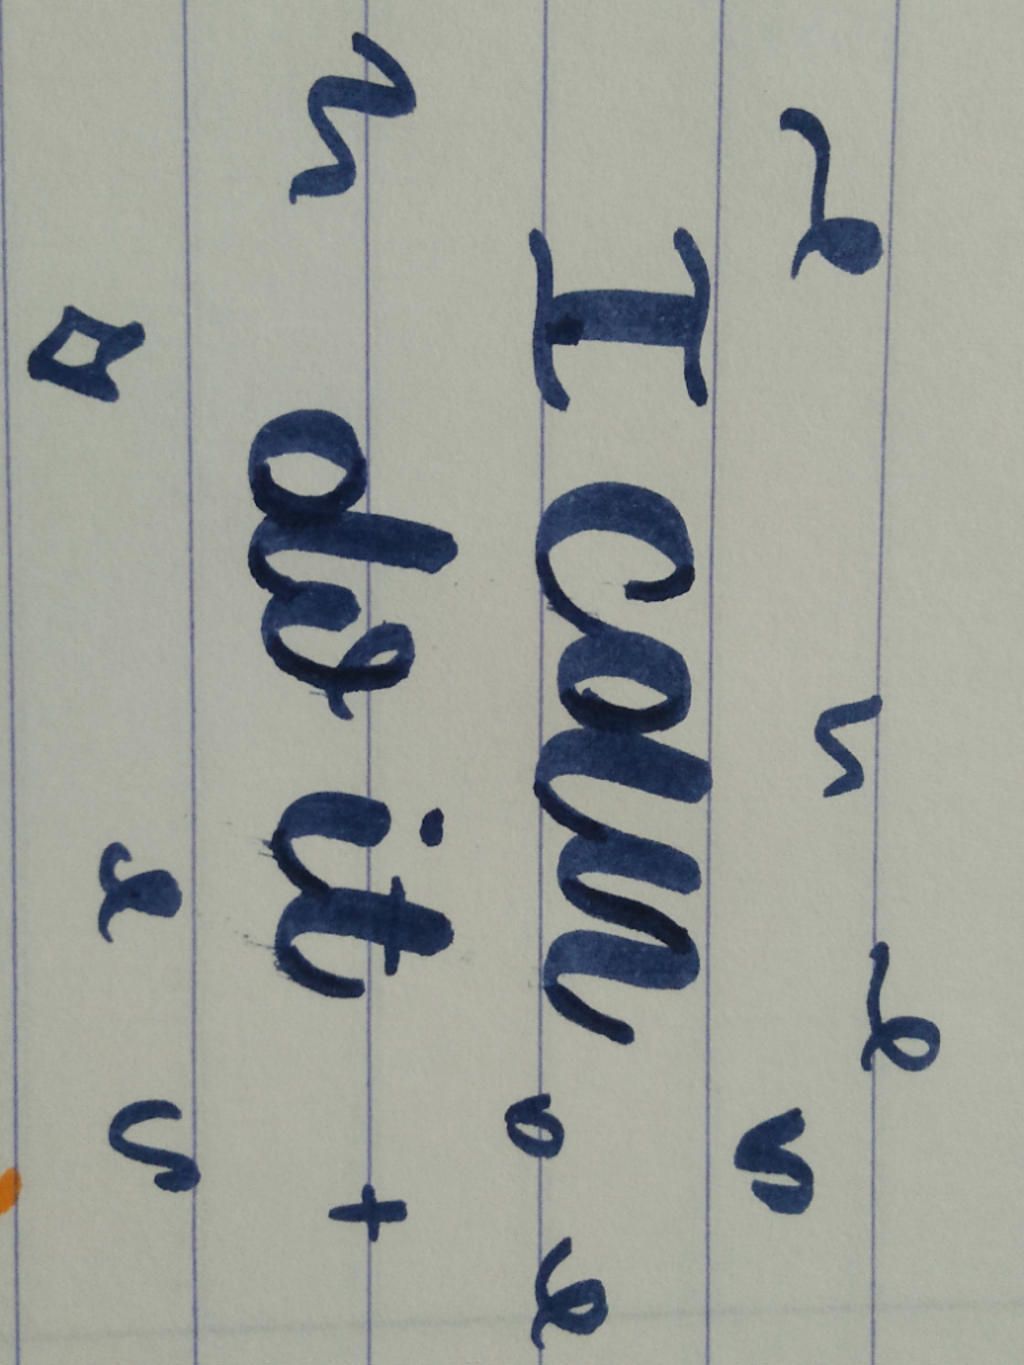 I can
do it